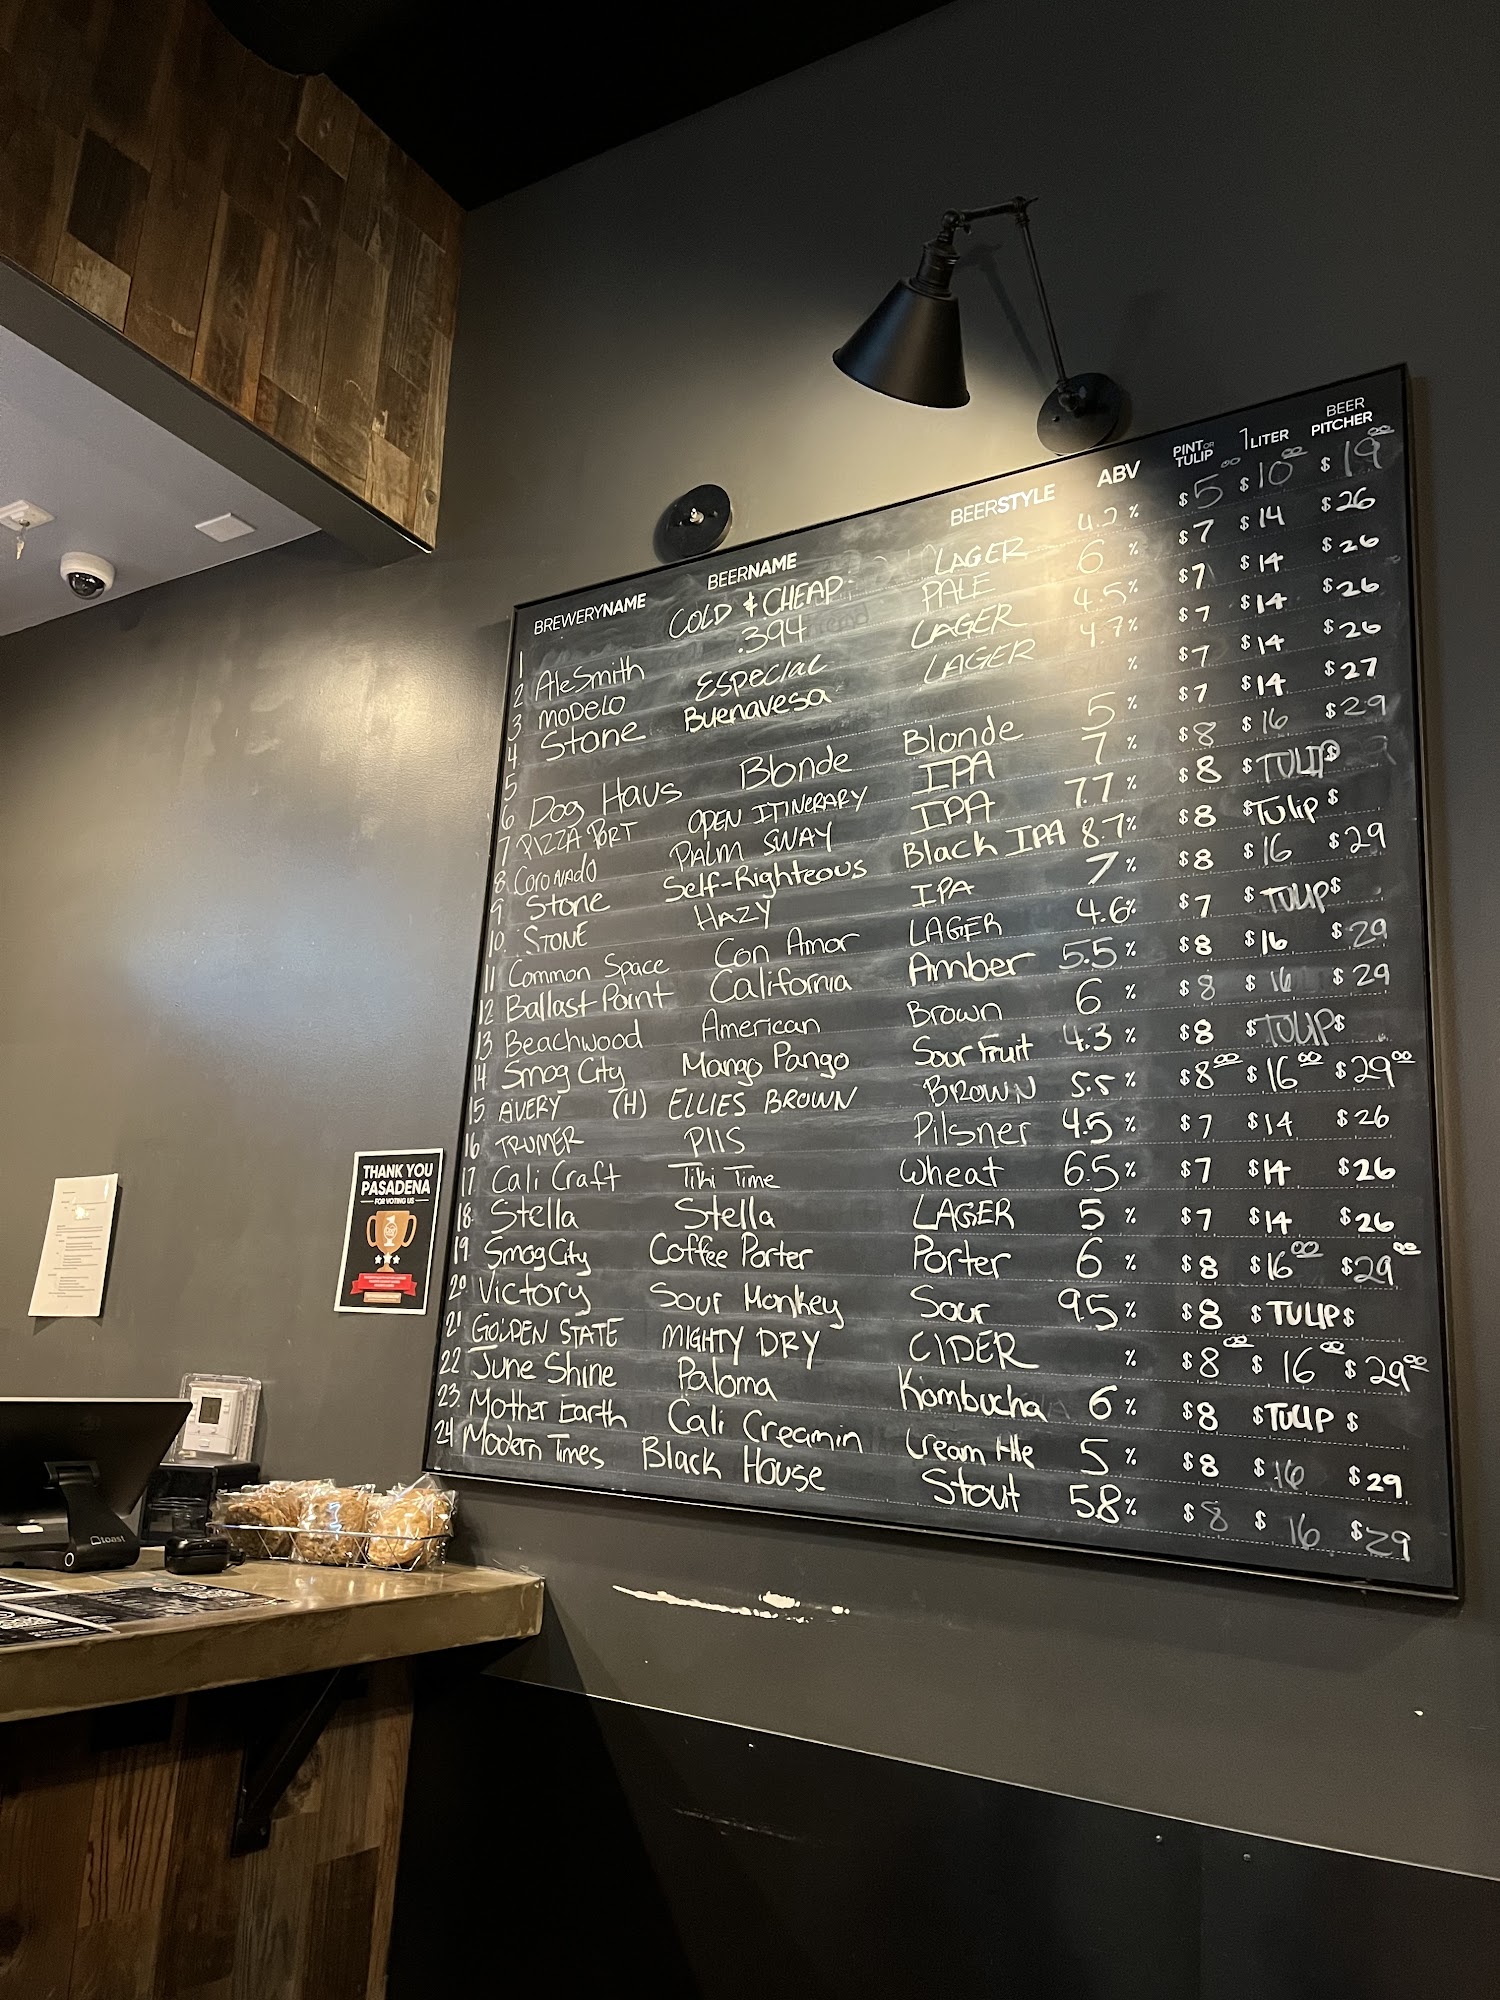 BREWERYNAME BEERNAME BEERSTYLE ABV PINT OR TULIP 1 LITER BEER PITCHER
1 COLD & CHEAP: LAGER 4.2 % $5.00 $10.00 $19.00
2 AleSmith .394 PALE 6 % $7 $14 $26
3 MODELO ESPECIAL LAGER 4.5% $7 $14 $26
4 Stone Buenavesa LAGER 4.7% $7 $14 $26
5 % $7 $14 $26
6 Dog Haus Blonde Blonde 5 % $7 $14 $27
7 PIZZA PORT OPEN ITINERARY IPA 7 % $8 $16 $29
8 CORONADO PALM SWAY IPA 7.7 % $8 $TULIP$
9 Stone Self-Righteous Black IPA 8.7% $8 $Tulip $
10. STONE HAZY IPA 7 % $8 $16 $29
11 Common Space Con Amor LAGER 4.6% $7 $TULIP$
12 Ballast Point California Amber 5.5 % $8 $16 $29
13 Beachwood American Brown 6 % $8 $16 $29
14 Smog City Mango Pango Sour Fruit 4.3 % $8 $TULIP$
15 AVERY (H) ELLIES BROWN BROWN 5.5 % $8.00 $16.00 $29.00
16 TRUMER PIIS Pilsner 4.5 % $7 $14 $26
17 Cali Craft Tiki Time Wheat 6.5% $7 $14 $26
18 Stella Stella LAGER 5 % $7 $14 $26
19 Smog City Coffee Porter Porter 6 % $8 $16.00 $29.00
20 Victory Sour Monkey Sour 9.5 % $8 $TULIP$
21 GOLDEN STATE MIGHTY DRY CIDER % $8.00 $16.00 $29.00
22 June Shine Paloma Kombucha 6 % $8 $TULIP $
23. Mother Earth Cali Creamin Cream Ale 5 % $8 $16 $29
24 Modern Times Black House Stout 5.8 % $8 $16 $29
THANK YOU
PASADENA
FOR VOTING US
toast